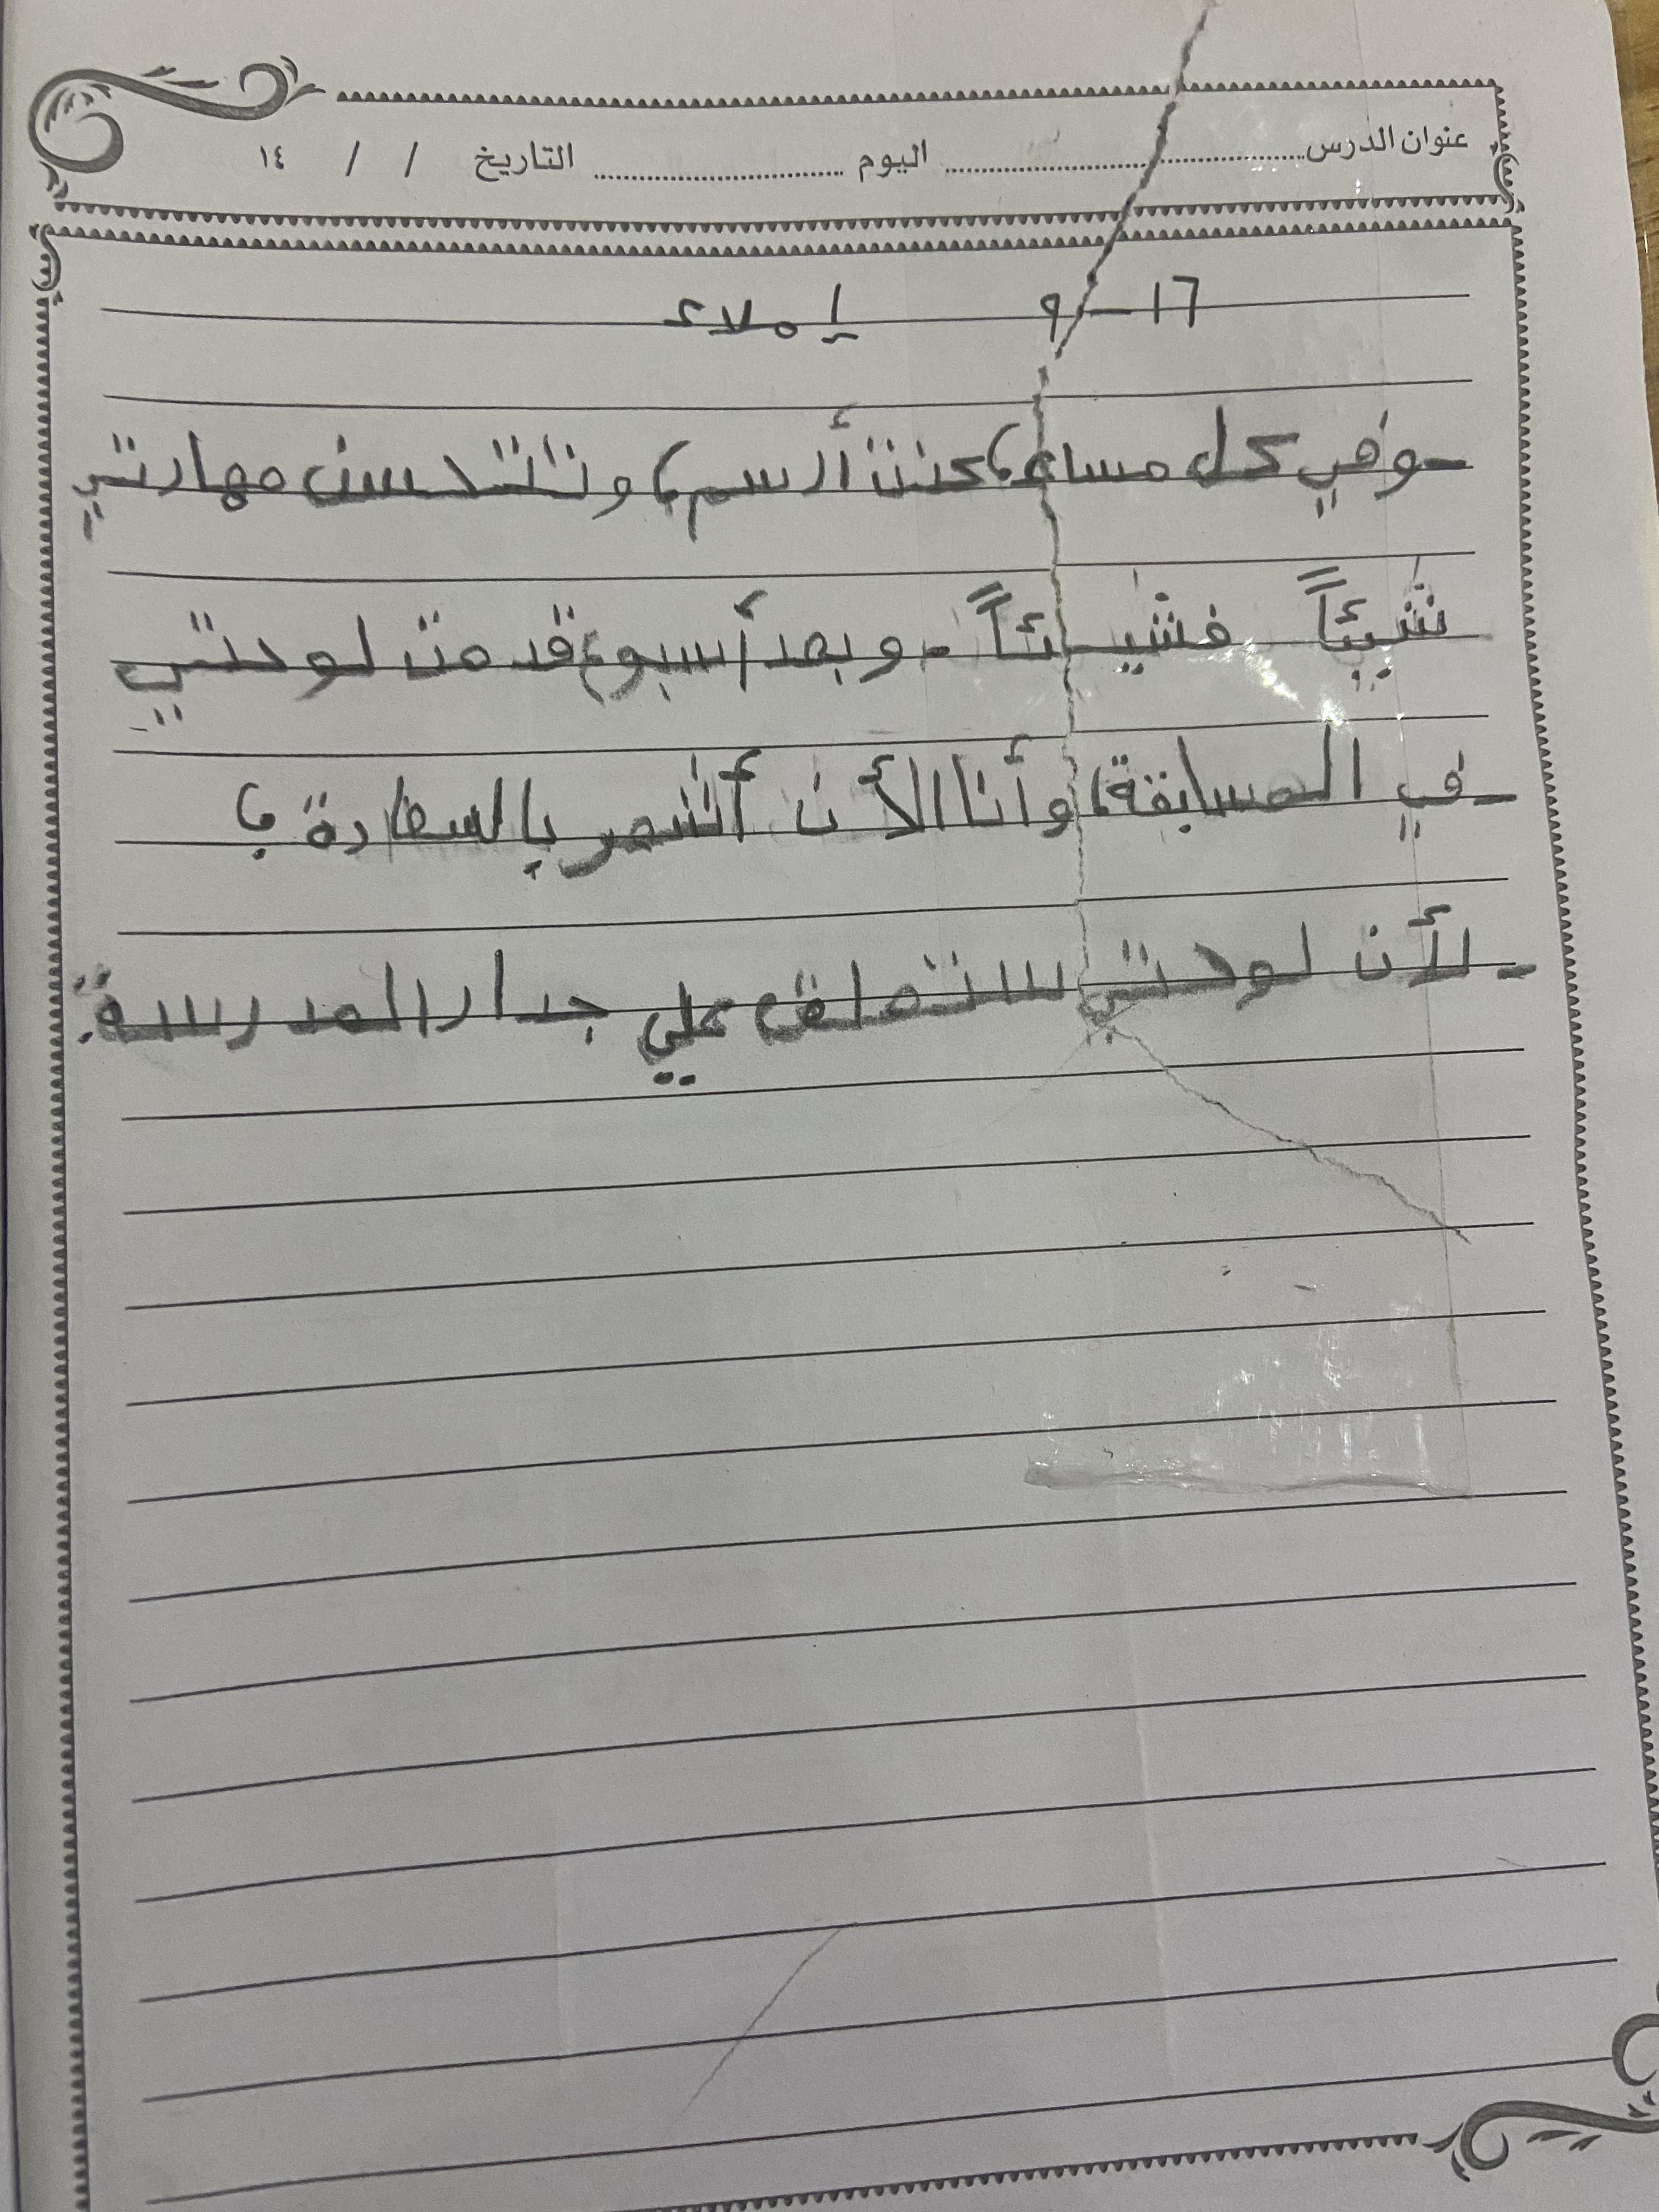 عنوان الدرس اليوم التاريخ / / ١٤
١٦-٩ إملاء
-وفي كل مساء، كنت أرسم، وتتحسن مهارتي
شيئاً فشيئاً - وبعد أسبوع قدمت لوحتي
-في المسابقة، وأنا الأن أشعر بالسعادة،
-لأن لوحتي ستعلق علي جدار المدرسة.